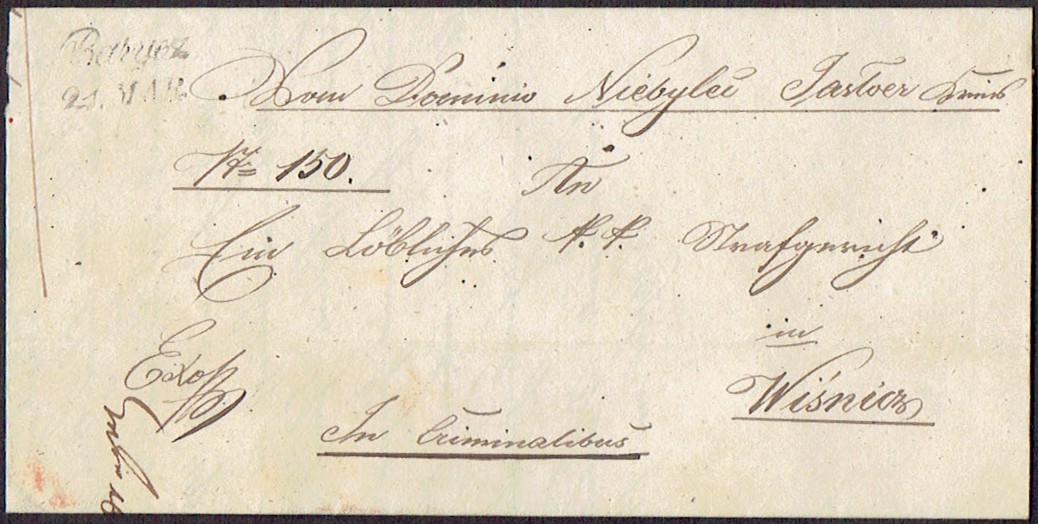 Baryez
21. MAR
Vom Dominio Niebylec Jasloer Kreis
N= 150.
An
Ein Löbliches k. k. Strafgericht
in
Wiśnicz
Exoff
In Criminalibus